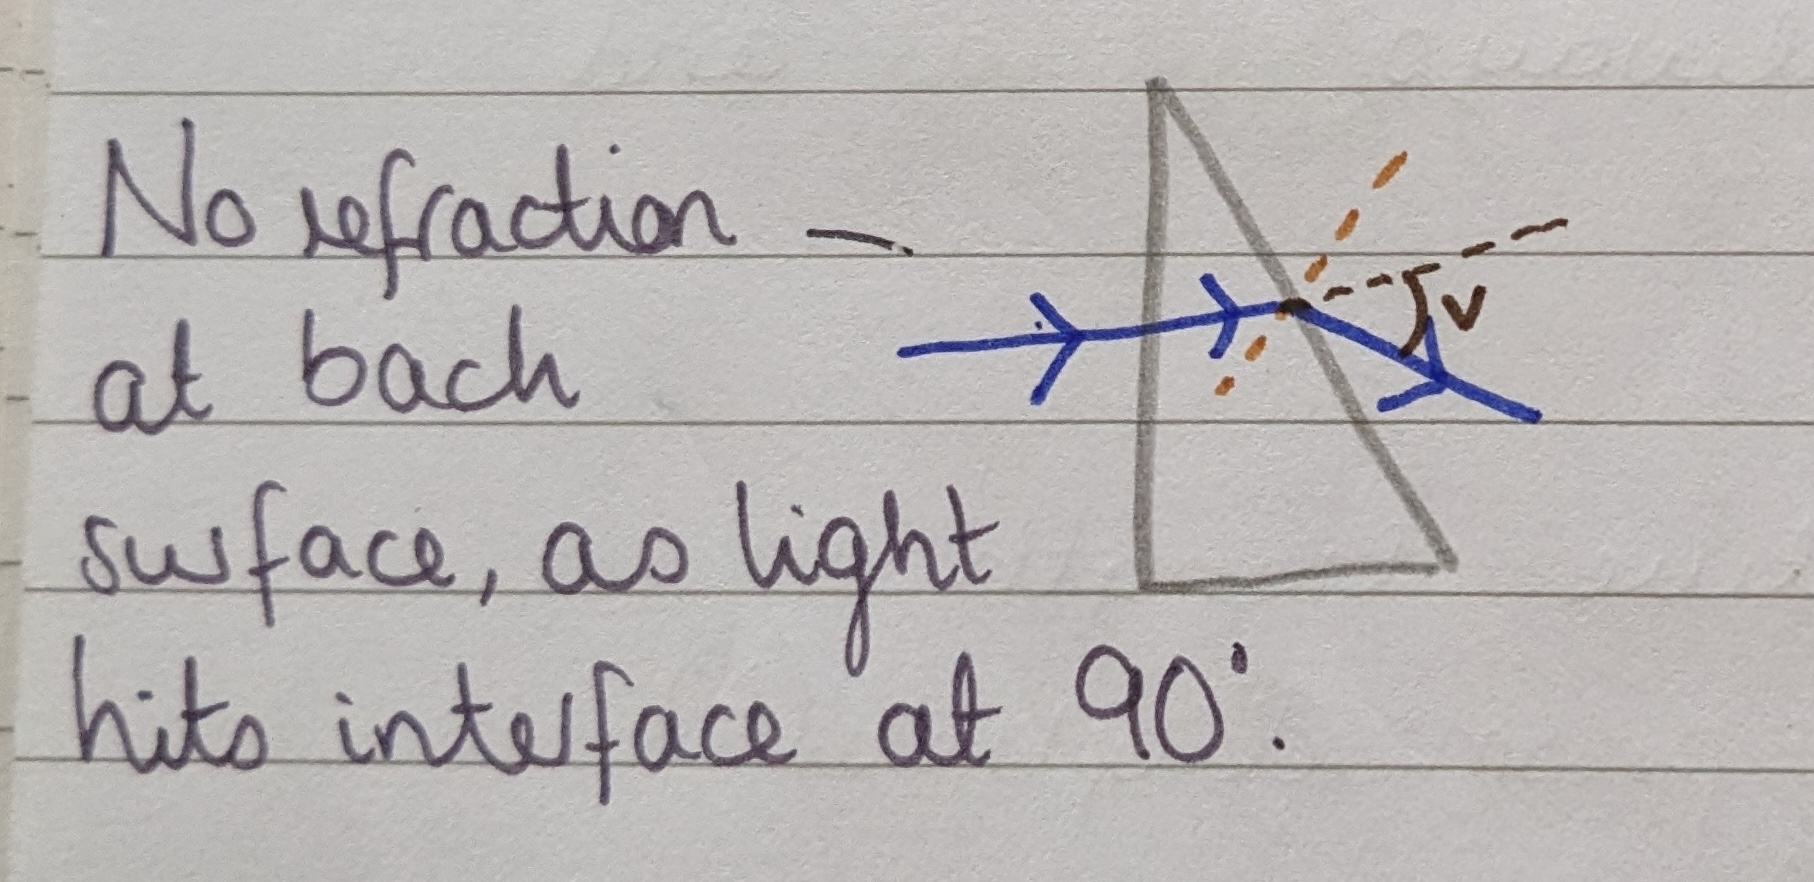 No refraction
at back
surface, as light
hits interface at 90°.
v